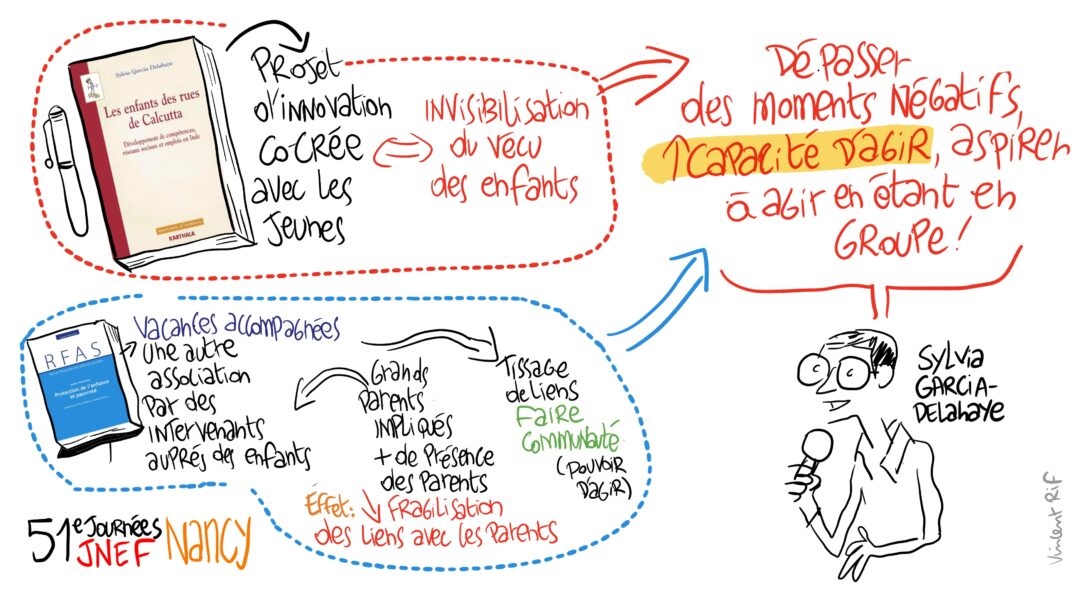 Sylvia Garcia Delahaye
Les enfants des rues
de Calcutta
Développement de compétences,
réseaux sociaux et emplois en Inde
KARTHALA
Projet
d'innovation
cocrée
avec les
jeunes
Invisibilisation
du vécu
des enfants
Dépasser
des moments négatifs,
↑ capacité d'agir, aspirer
à agir en étant en
groupe !
RFAS
Protection de l'enfance
et pauvreté
Vacances accompagnées
Une autre
association
par des
intervenants
auprés des enfants
Grands
Parents
impliqués
+ de présence
des parents
Éffet: ↘ fragilisation
des liens avec les parents
Tissage
de liens
Faire
communauté
(pouvoir
d'agir)
Sylvia
Garcia-
Delahaye
51e Journées
JNEF Nancy
Vincent Rif